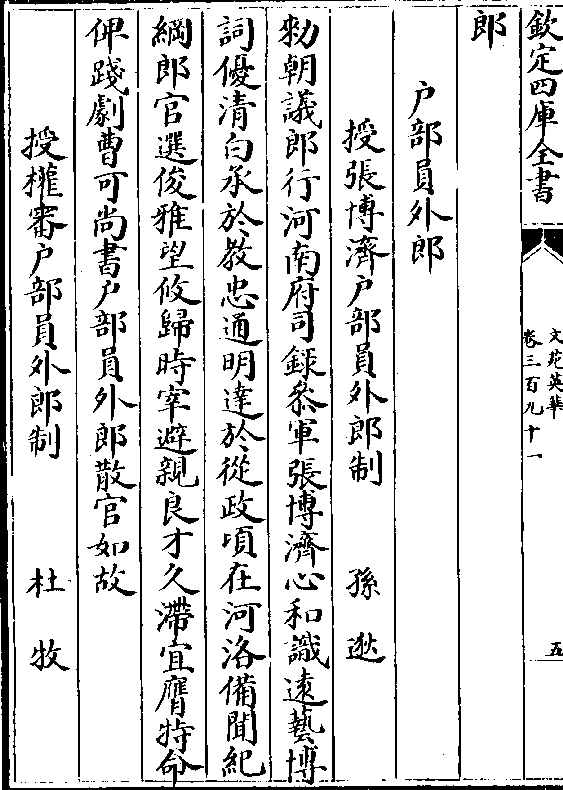 欽定四庫全書
文苑英華
卷三百九十一
五
郎
户部員外郎
授張博濟户部員外郎制 孫逖
勑朝議郎行河南府司録叅軍張博濟心和識逺藝博
詞優清白承於教忠通明達於從政頃在河洛備聞紀
綱郎官選俊雅望攸歸時宰避親良才久滯宜膺特命
俾踐劇曹可尚書户部員外郎散官如故
授權審户部員外郎制 杜牧